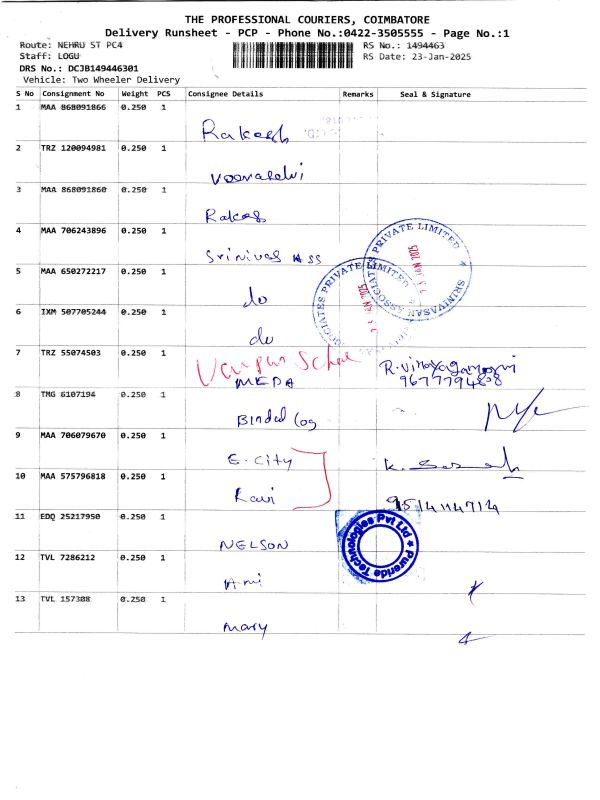 THE PROFESSIONAL COURIERS, COIMBATORE
Delivery Runsheet - PCP - Phone No.:0422-3505555 - Page No.:1
Route: NEHRU ST PC4
RS No.: 1494463
Staff: LOGU
RS Date: 23-Jan-2025
DRS No.: DCJB149446301
Vehicle: Two Wheeler Delivery
S No Consignment No Weight PCS Consignee Details Remarks Seal & Signature
1 MAA 868091866 0.250 1
Rakesh
2 TRZ 120094981 0.250 1
3 MAA 868091860 0.250 1
Rakes
4 MAA 706243896 0.250 1
Srinivas Ass
SRINIVASAN ASSOCIATES PRIVATE LIMITED
JAN 2025
5 MAA 650272217 0.250 1
do
ASSOCIATES PRIVATE LIMITED
JAN 2025
6 IXM 507705244 0.250 1
do
7 TRZ 55074503 0.250 1
MEDA
9677794808
8 TMG 6107194 0.250 1
9 MAA 706079670 0.250 1
E-City
10 MAA 575796818 0.250 1
Ravi
11 EDQ 25217950 0.250 1
NELSON
Pureride Technologies Pvt Ltd
12 TVL 7286212 0.250 1
Ami
13 TVL 157308 0.250 1
Mary